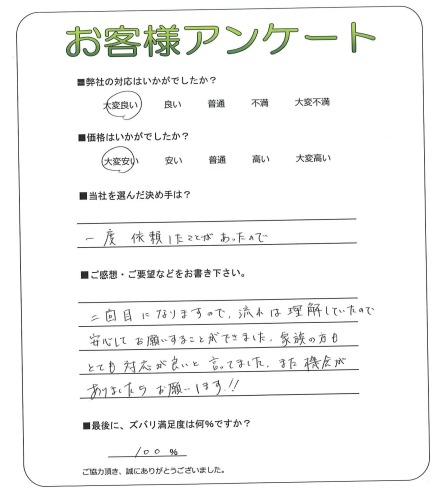 お客様アンケート
■弊社の対応はいかがでしたか?
大変良い 良い 普通 不満 大変不満
■価格はいかがでしたか?
大変安い 安い 普通 高い 大変高い
■当社を選んだ決め手は?
一度 依頼したことがあったので
■ご感想・ご要望などをお書き下さい。
二回目になりますので、流れは理解していたので
安心してお願いすることができました。家族の方も
とても対応が良いと言ってました。また機会が
ありましたらお願いします!!
■最後に、ズバリ満足度は何%ですか?
100 %
ご協力頂き、誠にありがとうございました。